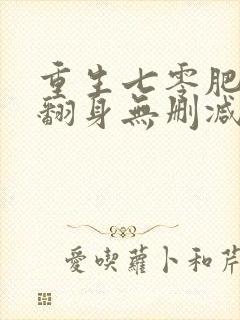 重生七零肥
翻身無刪減
愛喫蘿卜和芹